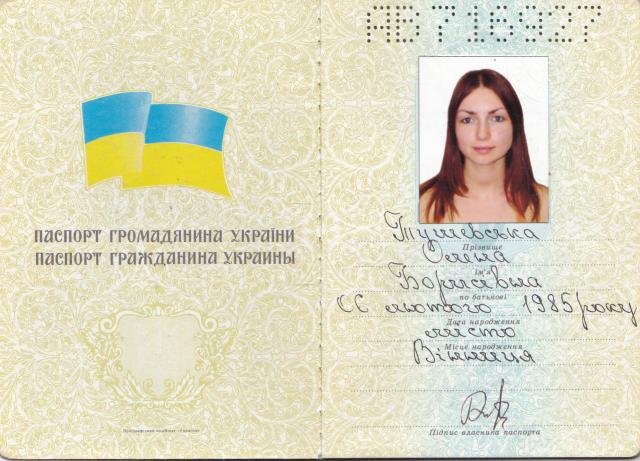 ПАСПОРТ ГРОМАДЯНИНА УКРАЇНИ
ПАСПОРТ ГРАЖДАНИНА УКРАИНЫ
АВ 716927
Прізвище
Олена
Ім'я
Борисівна
по батькові
06 лютого 1985 року
Дата народження
місто
Місце народження
Вінниця
Підпис власника паспорта